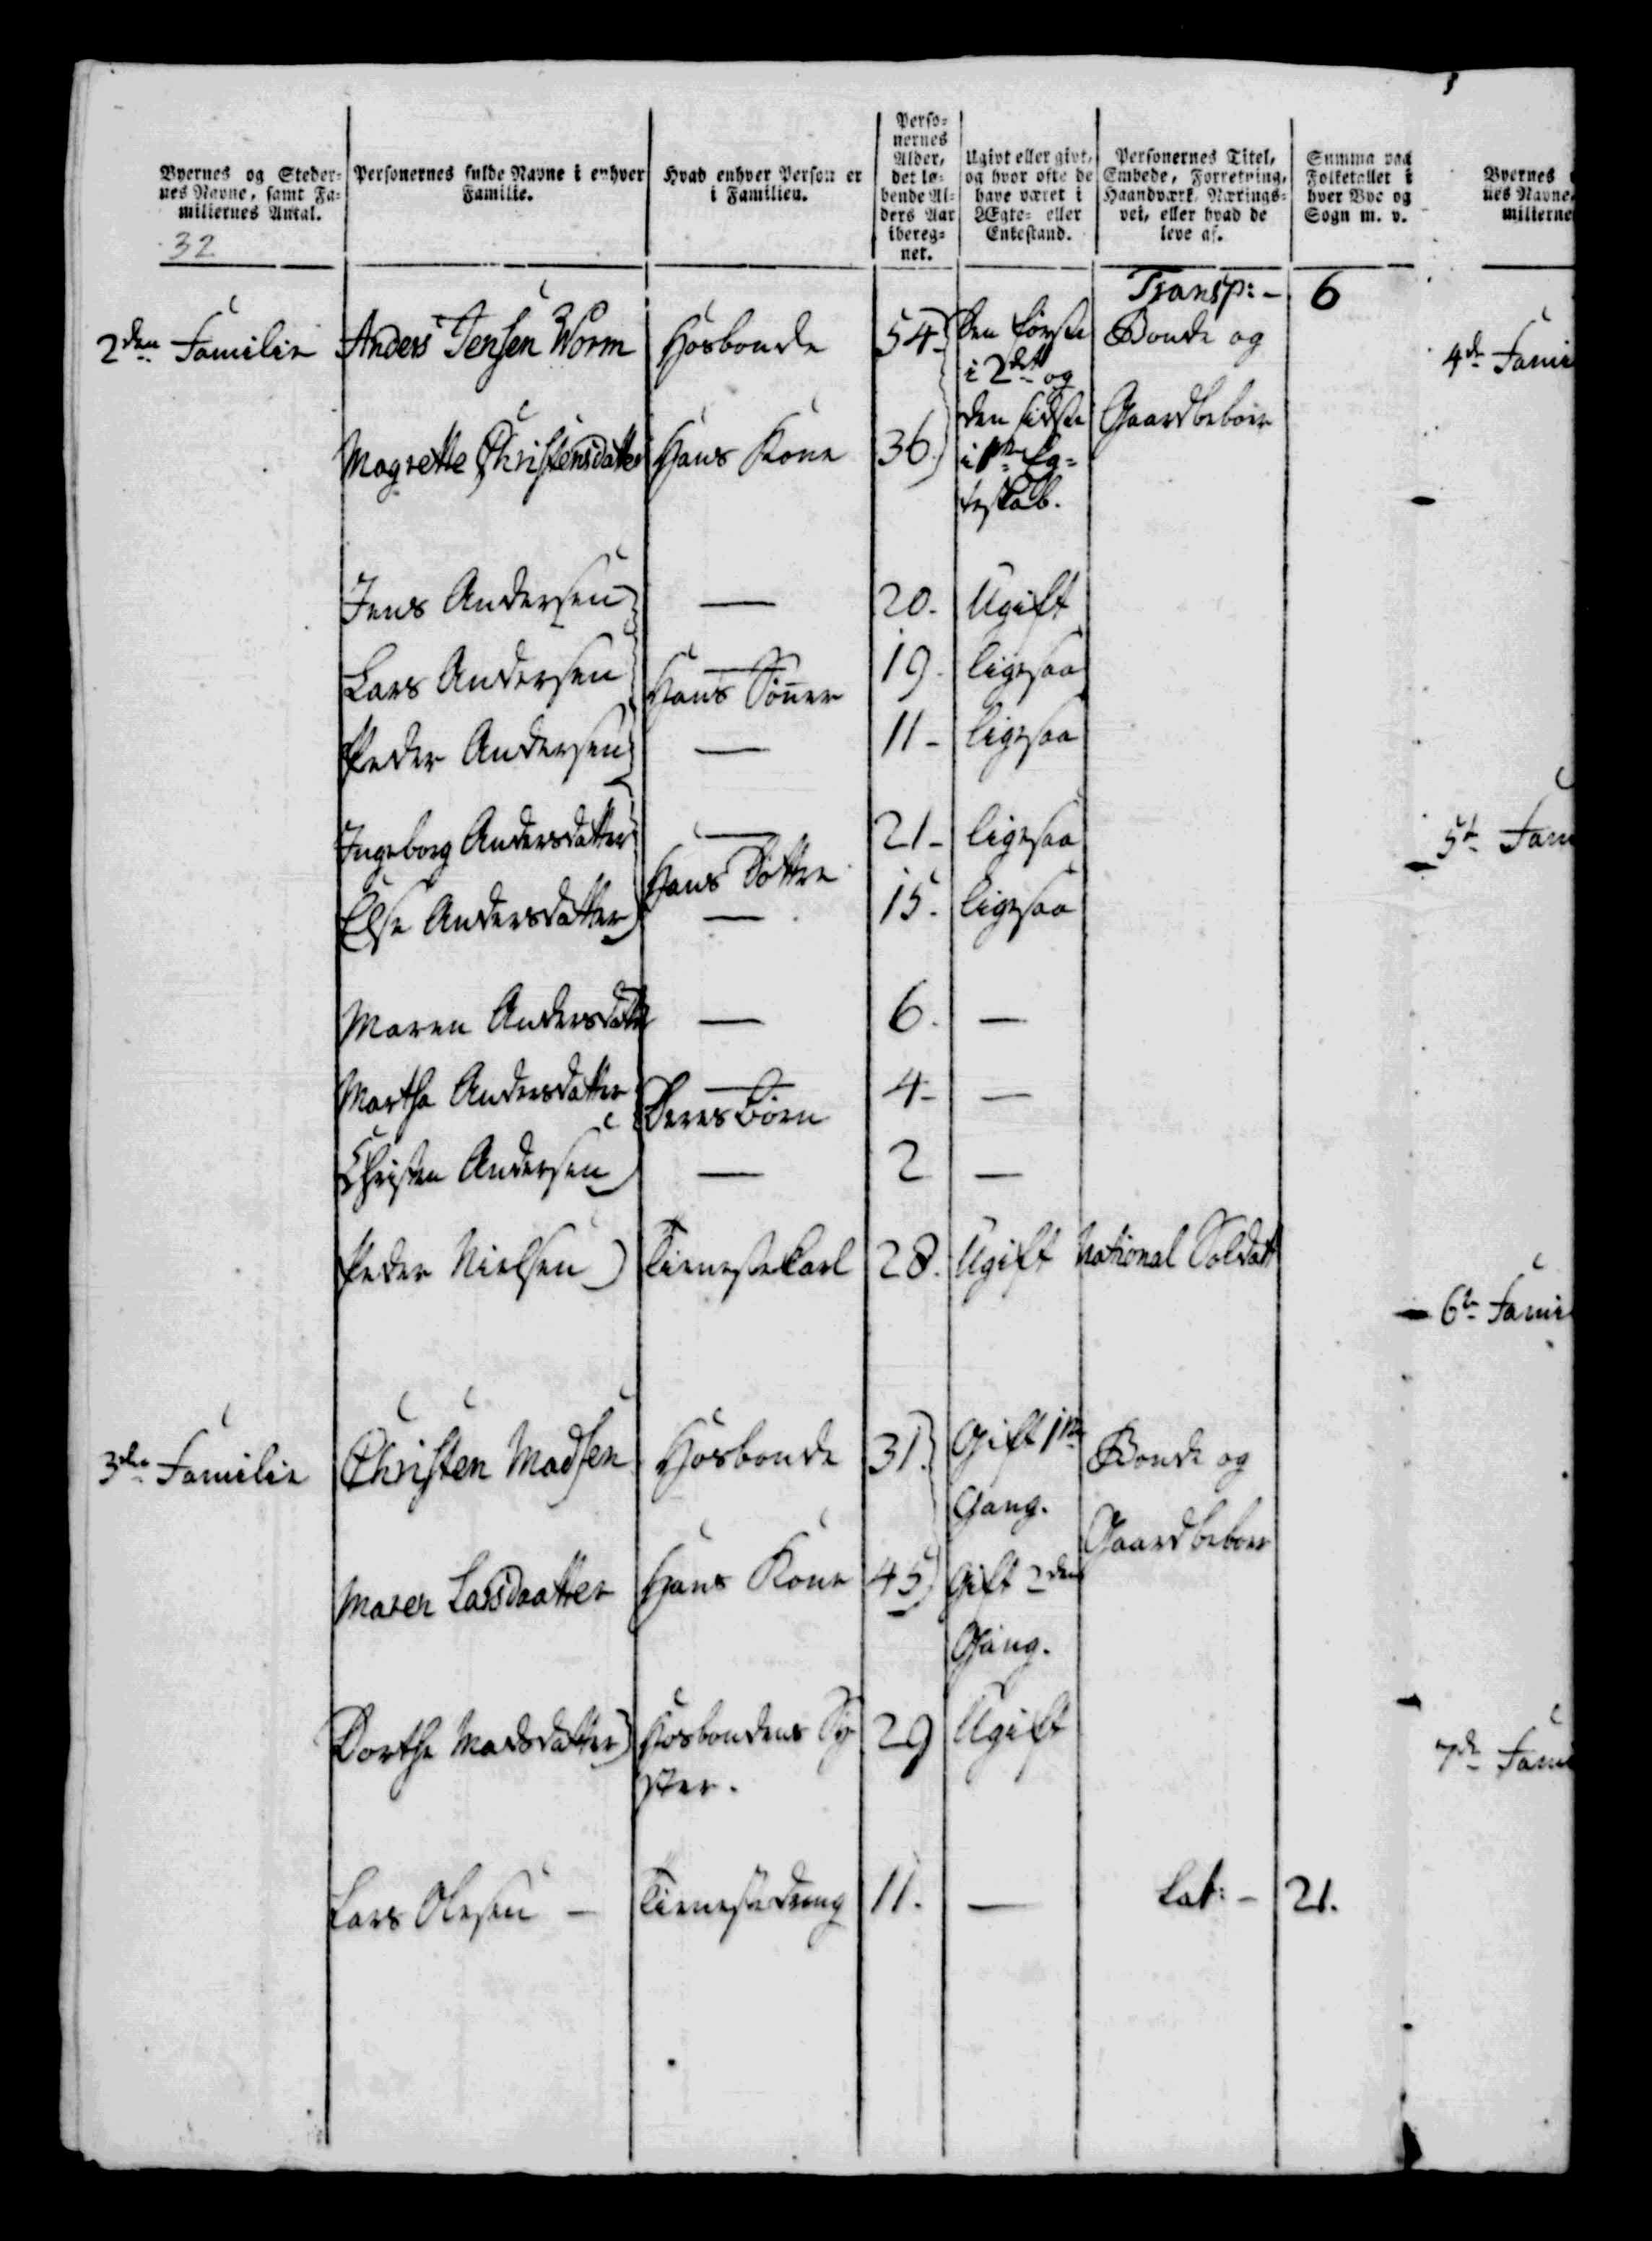 Byernes og Steder=
nes Navne, samt Fa=
miliernes Antal.
32
Personernes fulde Navne i enhver
Familie.
Hvad enhver Person er
i Familien.
Perso=
nernes
Alder,
det lø=
bende Al=
ders Aar
ibereg=
net.
Ugivt eller givt,
og hvor ofte de
have været i
Ægte= eller
Enkestand.
Personernes Titel,
Embede, Forretning,
Haandværk, Nærings=
vei, eller hvad de
leve af.
Summa paa
Folketallet i
hver Bye og
Sogn m. v.
Byernes
nes Navne,
milierne
Transp: – 6
2den Familie Anders Jensen Worm Hosbonde 54 den første Bonde og
i 2det og
Magrette Christensdatter Hans Kone 36 den sidste Gaardbeboer
i 1te Eg=
teskab.
Jens Andersen — 20. Ugift
Lars Andersen Hans Sønner 19. ligesaa
Peder Andersen — 11 – ligesaa
Ingeborg Andersdatter — 21 – ligesaa
Hans Døttre
Else Andersdatter — 15. ligesaa
Maren Andersdatter — 6. —
Martha Andersdatter Deres Børn 4 – —
Christen Andersen — 2 —
Peder Nielsen Tienestekarl 28. Ugift National Soldat
3die Familie Christen Madsen Hosbonde 31. Gift 1te Bonde og
Gang. Gaardbeboer
Maren Larsdaatter Hans Kone 45 Gift 2den
Gang.
Dorthe Madsdatter Hosbondens Sy 29 Ugift
ster.
Lars Olesen – Tienestedreng 11. — Lat: – 21.
4de Fami
5te Fam
6te Fami
7de Fami